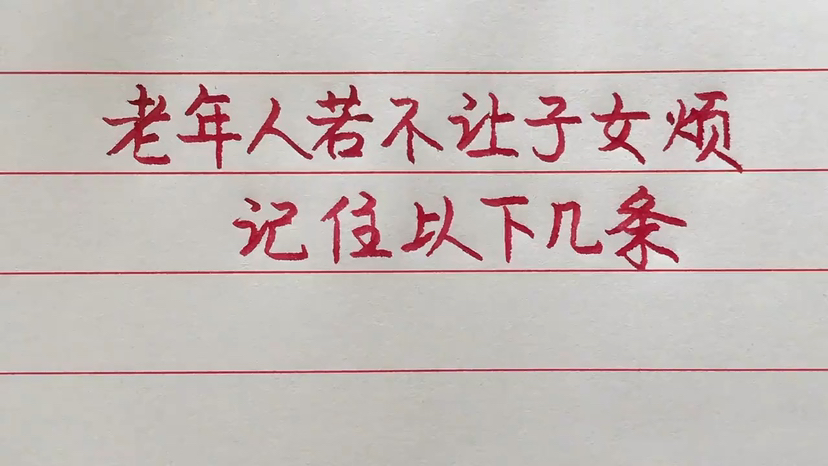 老年人若不让子女烦
记住以下几条